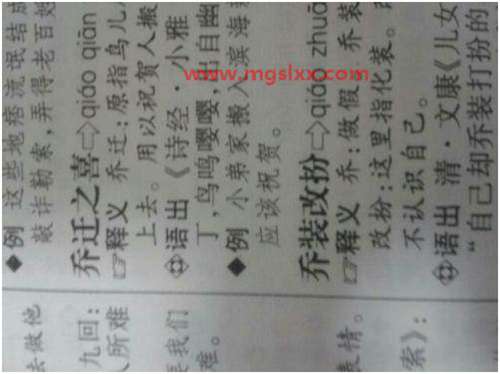 ◆例 这些地痞流氓结成
敲诈勒索,弄得老百姓
乔迁之喜⇨qiáo qiān
☞释义 乔迁:原指鸟儿
上去。用以祝贺人搬
语出《诗经·小雅
丁,鸟鸣嘤嘤,出自幽
◆例 小弟家搬入滨海
应该祝贺。
乔装改扮⇨qiáo zhuā
☞释义 乔:做假。乔装
改扮:这里指化装。
不认识自己。
语出 清·文康《儿女
“自己却乔装打扮的
去做他
九回:
人所难
要我们
难。
表情。
索》:
www.mgslxx.com